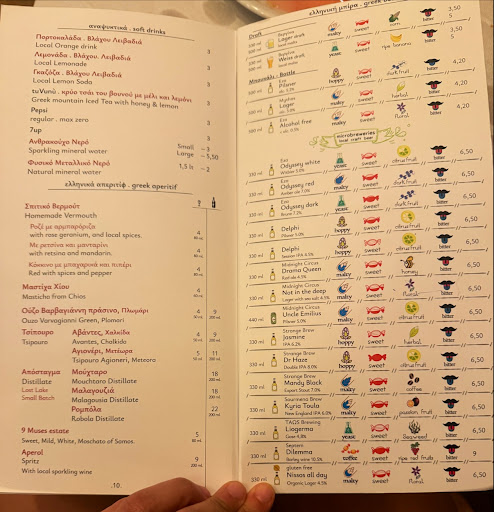 αναψυκτικά . soft drinks
Πορτοκαλάδα . Βλάχου Λειβαδιά
Local Orange drink 3
Λεμονάδα . Βλάχου Λειβαδιά
Local Lemonade 3
Γκαζόζα . Βλάχου Λειβαδιά
Local Lemon Soda 3
tuVunú . κρύο τσάι του βουνού με μέλι και λεμόνι
Greek mountain Iced Tea with honey & lemon 3
Pepsi
regular . max zero 3
7up 3
Ανθρακούχο Νερό Small – 3
Sparkling mineral water Large – 5,50
Φυσικό Μεταλλικό Νερό 1,5 lt – 2
Natural mineral water
ελληνικά απεριτίφ . greek aperitif
Σπιτικό Βερμούτ
Homemade Vermouth
Ροζέ με αρμπαρόριζα 4
with rose geranium, and local spices.
Με ρετσίνα και μανταρίνι 4
with retsina and mandarin.
Κόκκινο με μπαχαρικά και πιπέρι 4
Red with spices and pepper
Μαστίχα Χίου 4
Masticha from Chios
Ούζο Βαρβαγιάννη πράσινο, Πλωμάρι 4 9
Ouzo Varvagianni Green, Plomari
Τσίπουρο Αβάντες, Χαλκίδα 4 9
Tsipouro Avantes, Chalkida
Αγιονέρι, Μετέωρα 5 11
Tsipouro Agioneri, Meteora
Απόσταγμα Μούχταρο 18
Distillate Mouchtaro Distillate
Lost Lake Μαλαγουζιά 18
Small Batch Malagousia Distillate
Ρομπόλα 22
Robola Distillate
9 Muses estate 5
Sweet, Mild, White, Moschato of Samos.
Aperol 9
Spritz
With local sparkling wine
.10.
ελληνική μπίρα . greek
Draft
Lager Draft sweet corn bitter 3,50
Weiss Draft yeast sweet ripe banana bitter
Μπουκάλι - Bottle
330 ml Pilsner sweet bitter 4,20
Mythos
Lager malty sweet dark fruit bitter 4,20
Eza
Alcohol free yeast sweet floral bitter 4,20
microbreweries
local craft beer
Eza
330 ml Odyssey white yeast sweet citrus fruit bitter 6,50
Eza
330 ml Odyssey red malty sweet dark fruit bitter 6,50
Eza
330 ml Odyssey dark yeast sweet dark fruit bitter 6,50
330 ml Delphi hoppy sweet citrus fruit bitter 6,50
330 ml Delphi hoppy sweet citrus fruit bitter 6,50
Session IPA 4.5%
Midnight Circus
330 ml Drama Queen malty sweet honey bitter 6,50
Midnight Circus
330 ml Not in the deep malty sweet floral bitter 6,50
Midnight Circus
440 ml Uncle Emilius malty sweet citrus fruit bitter 6,50
Strange Brew
330 ml Jasmine hoppy sweet citrus fruit bitter 6,50
IPA 6.2%
Strange Brew
330 ml Dr Haze hoppy sweet citrus fruit bitter 6,50
Double IPA 8.0%
Strange Brew
330 ml Mandy Black malty sweet coffee bitter 6,50
330 ml Kyria Toula malty sweet passion fruit bitter 6,50
New England IPA 6.0%
330 ml Liogerma yeast sweet Seaweed bitter 6,50
Septem
330 ml Dilemma toffee sweet ripe red fruits bitter 9
Barley wine 10.5%
gluten free
330 ml Nissos all day malty sweet floral bitter 6,50
Organic Lager 4.5%